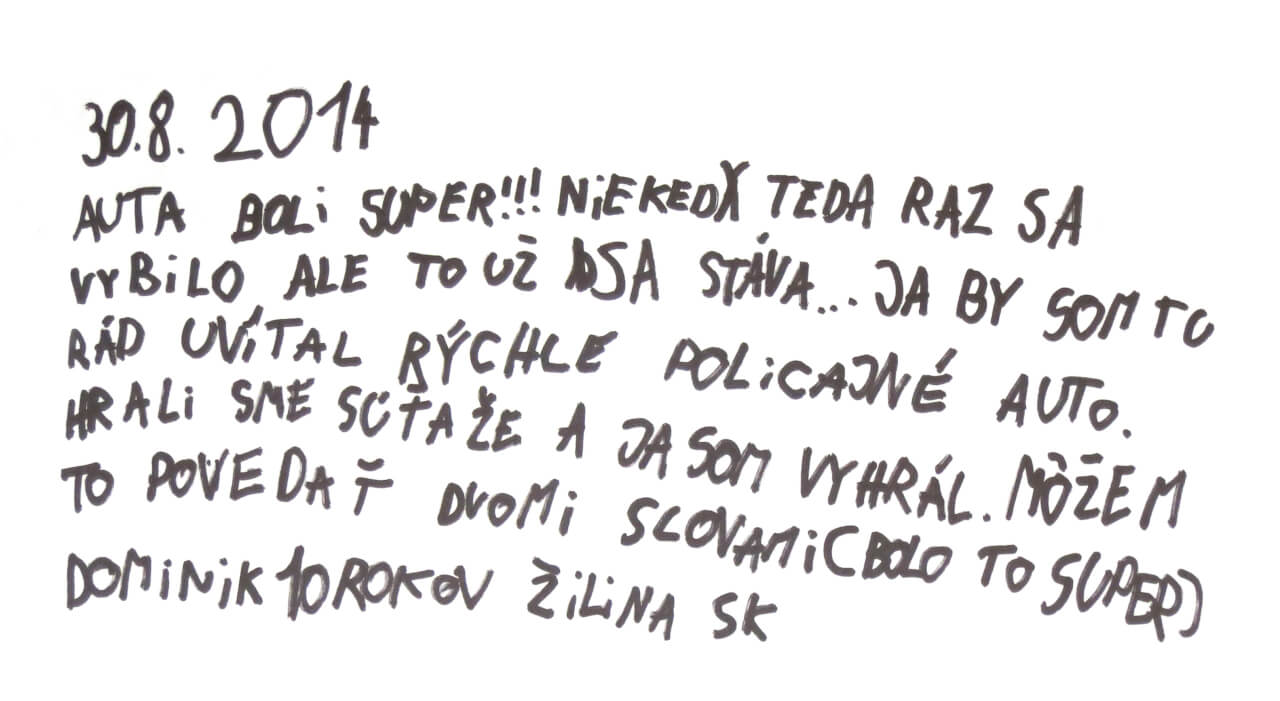 30.8. 2014
AUTA BOLI SUPER!!! NIEKEDY TEDA RAZ SA
VYBILO ALE TO UŽ SA STÁVA... JA BY SOM TU
RÁD UVÍTAL RÝCHLE POLICAJNÉ AUTO.
HRALI SME SÚŤAŽE A JA SOM VYHRÁL. MÔŽEM
TO POVEDAŤ DVOMI SLOVAMI (BOLO TO SUPER)
DOMINIK 10 ROKOV ŽILINA SK